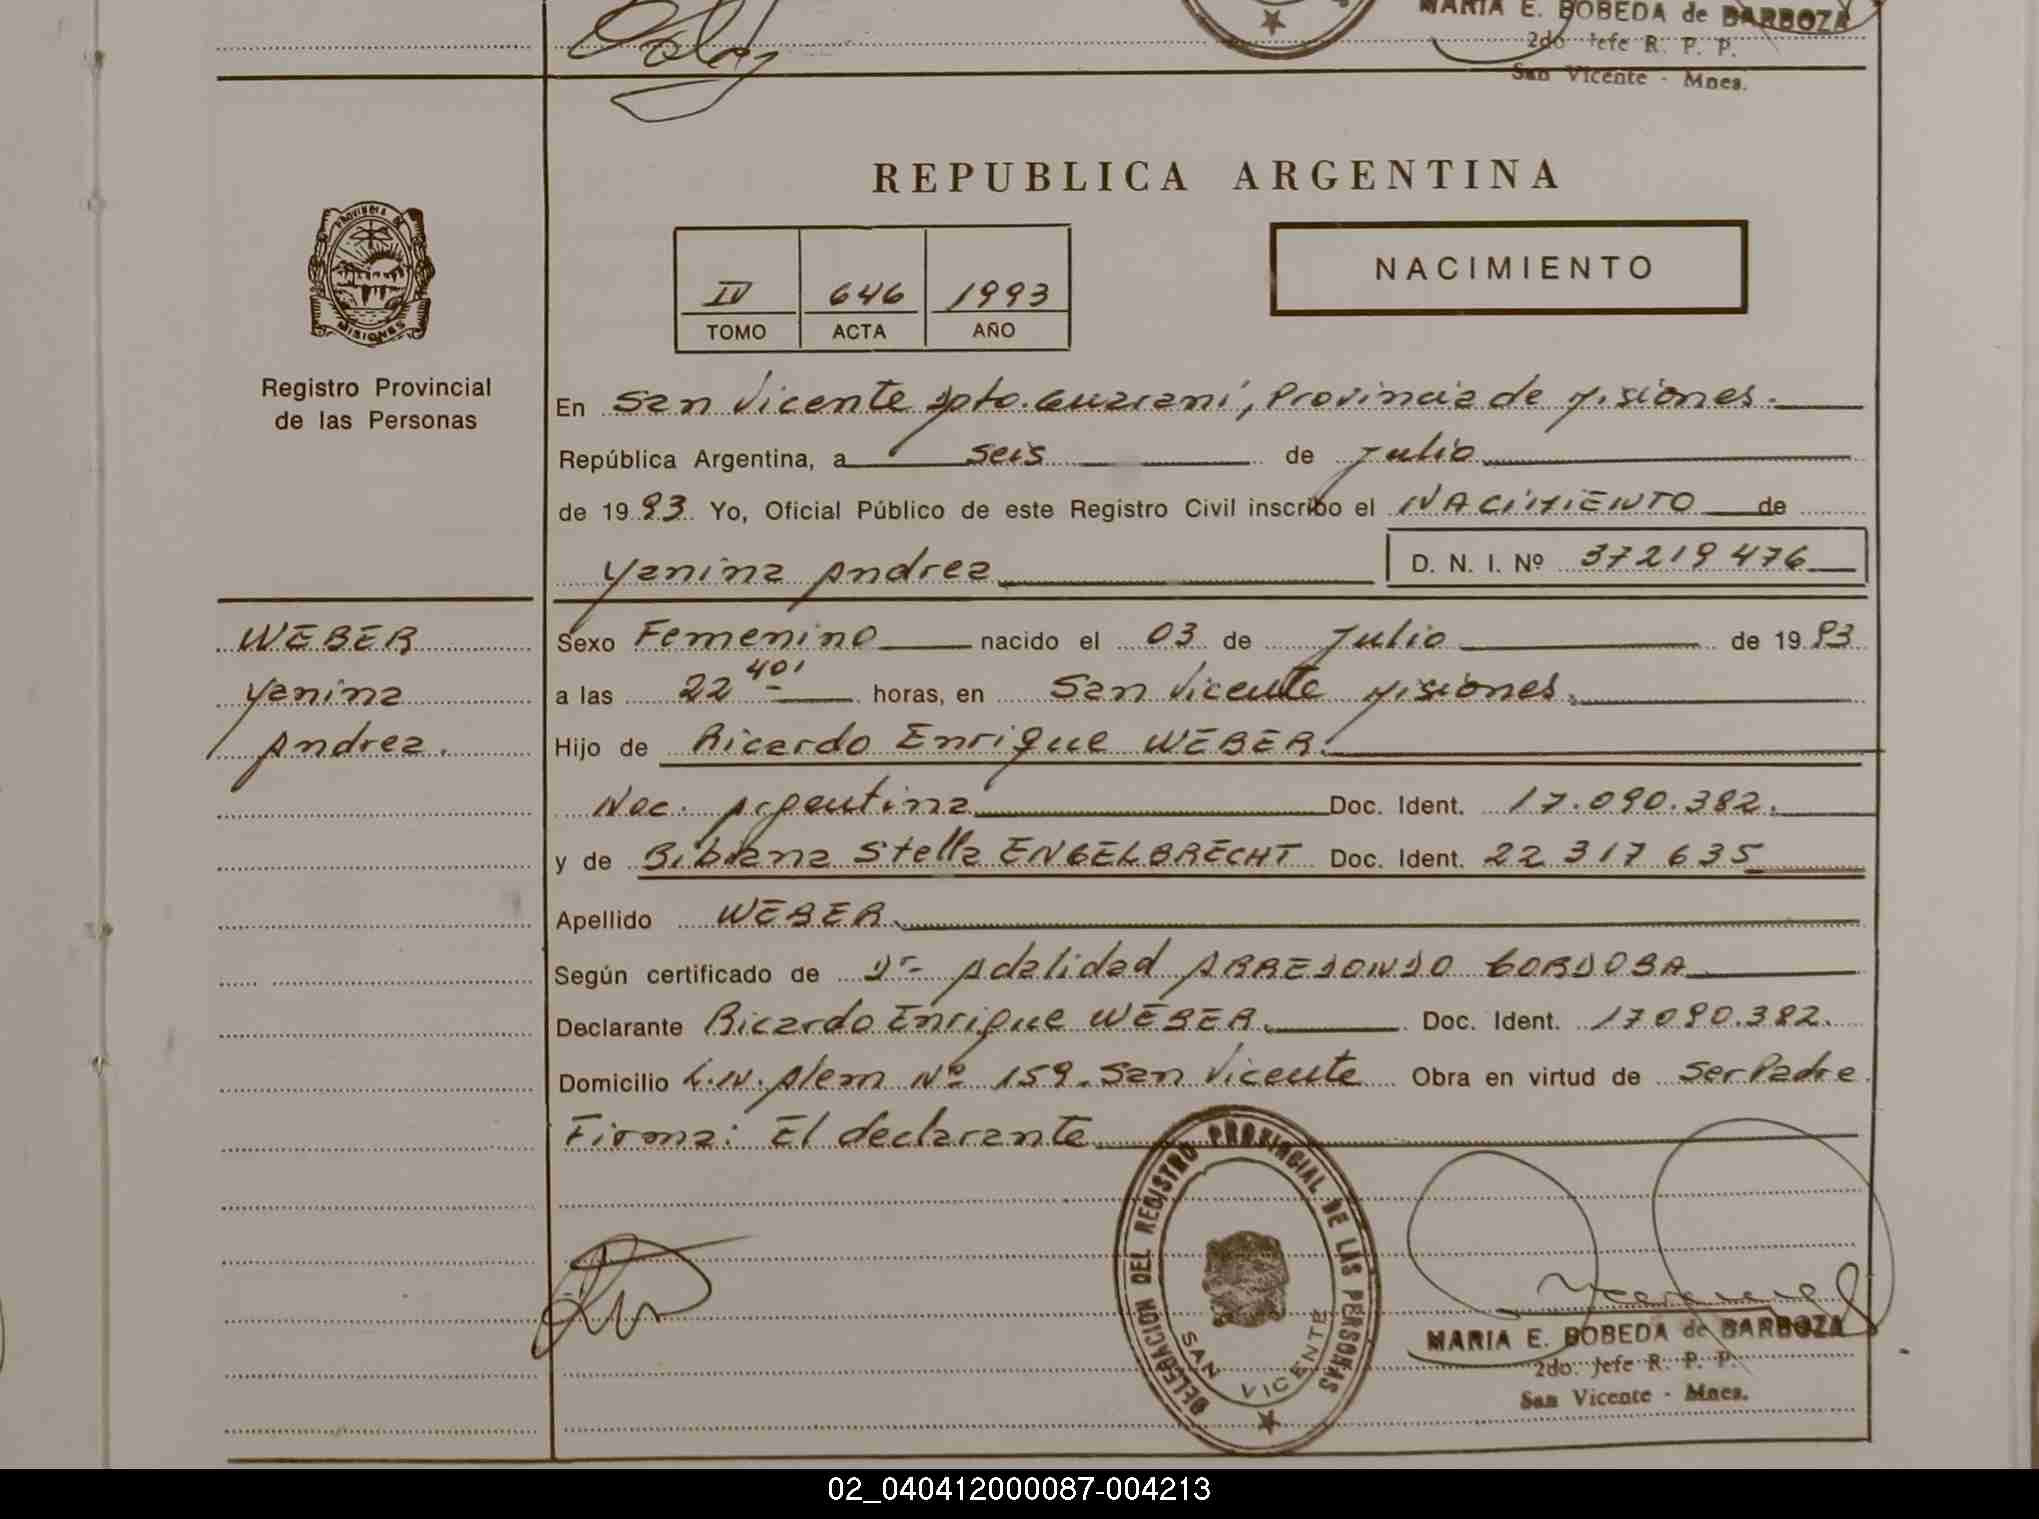 MARIA E. BOBEDA de BARBOZA
2do. Jefe R. P. P.
San Vicente - Mnes.
REPUBLICA ARGENTINA
PROVINCIA DE
MISIONES
Registro Provincial
de las Personas
IV 646 1993
TOMO ACTA AÑO
NACIMIENTO
En San Vicente Dpto. Guaraní, Provincia de Misiones.
República Argentina, a seis de Julio
de 1993. Yo, Oficial Público de este Registro Civil inscribo el NACIMIENTO de
Yanina Andrea D. N. I. Nº 37219476
WEBER
Yanina
Andrea.
Sexo Femenino nacido el 03 de Julio de 1993
a las 22 40' horas, en San Vicente Misiones.
Hijo de Ricardo Enrique WEBER.
Nac. Argentina Doc. Ident. 17.090.382.
y de Bibiana Stella ENGELBRECHT Doc. Ident. 22 317 635
Apellido WEBER.
Según certificado de Dr- Adalidad ARREDONDO CORDOBA
Declarante Ricardo Enrique WEBER. Doc. Ident. 17090.382.
Domicilio L.N. Alem Nº 159. San Vicente Obra en virtud de Ser Padre.
Firma: El declarante
DELEGACION DEL REGISTRO PROVINCIAL DE LAS PERSONAS
SAN VICENTE
MARIA E. BOBEDA de BARBOZA
2do. Jefe R. P. P.
San Vicente - Mnes.
02_040412000087-004213